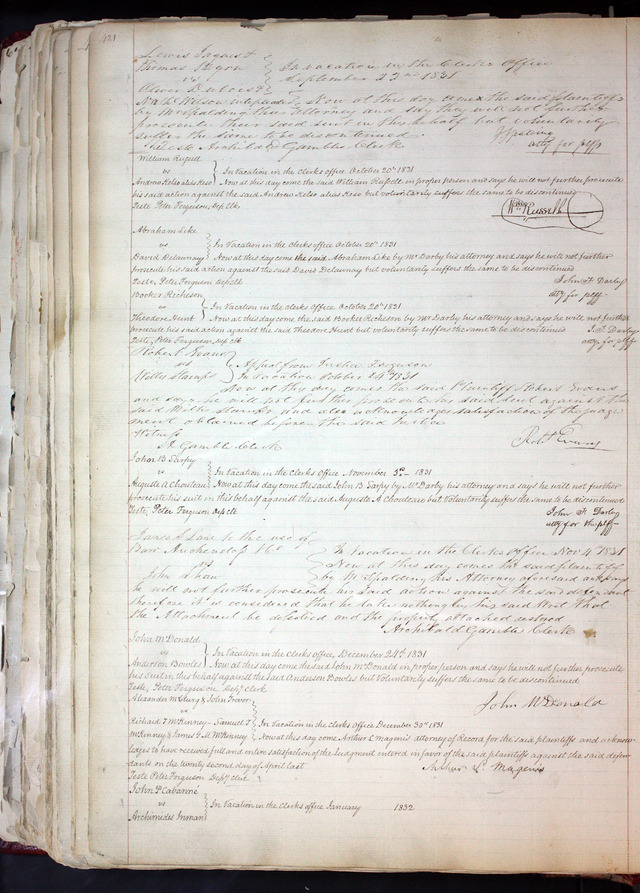 421
Thomas Lyon } In vacation in the Clerks Office
vs September 22nd 1831
Now at this day comes the said plaintiffs
by Mr Spalding their Attorney and say they will not further
prosecute their said suit in this behalf but voluntarily
suffer the same to be discontinued
Teste Archibald Gamble Clerk
atty for plffs
William Russell
vs } In Vacation in the Clerks office October 20th 1831
Andrew Kelso alias Keso Now at this day come the said William Russell in proper person and says he will not further prosecute
his said action against the said Andrew Kelso alias Keso but voluntarily suffers the same to be discontinued
Teste Peter Ferguson, Dep Clk
Wm Russell
Abraham Like
vs } In Vacation in the Clerks office October 20th 1831
David Delaunay Now at this day come the said Abraham Like by Mr Darby his attorney and says he will not further
prosecute his said action against the said David Delaunay but voluntarily suffers the same to be discontinued
Teste, Peter Ferguson dep clk
John F Darby
atty for plff
Booker Richeson
vs } In Vacation in the clerks office October 20th 1831
Theodore Hunt Now at this day come the said Booker Richeson by Mr Darby his attorney and says he will not further
prosecute his said action against the said Theodore Hunt but voluntarily suffers the same to be discontinued
J. F. Darby
Teste, Peter Ferguson, Dep Clk
atty for plff
Robert Evans
vs } Appeal from Justice Ferguson
Willis Stamps In Vacation October 1831
Now at this day comes the said Plaintiff Robert Evans
and says he will not further prosecute his said suit against the
said Willis Stamps and also acknowledges satisfaction of the judg
ment obtained before the said Justice
Witness
A Gamble Clerk
Robt Evans
John B Sarpy
vs } In Vacation in the Clerks Office November 5th 1831
Auguste A Chouteau Now at this day come the said John B Sarpy by Mr Darby his attorney and says he will not further
prosecute his suit in this behalf against the said Auguste A Chouteau but Voluntarily suffers the same to be discontinued
Teste, Peter Ferguson Dep Clk
John F Darby
atty for the plff
James S Lane to the use of
In Vacation in the Clerks Office Nov 4 1831
vs } Now at this day comes the said plaintiff
John Shaw by Mr Spalding his Attorney aforesaid and says
he will not further prosecute his said action against the said defendant
therefore it is considered that he take nothing by his said Writ that
the Attachment be dissolved and the property attached restored
Archibald Gamble Clerk
John McDonald
vs } In Vacation in the Clerks Office, December 24th 1831
Anderson Bowles Now at this day come the said John McDonald in proper person and says he will not further prosecute
his Suit in this behalf against the said Anderson Bowles but Voluntarily suffers the same to be discontinued
Teste, Peter Ferguson Depy Clerk
John McDonald
Alexander McClurg & John Trevor
vs
Richard T McKinney Samuel T } In Vacation in the Clerks Office December 30th 1831
McKinney & James S M McKinney Now at this day come Arthur L Magenis attorney of Record for the said plaintiffs and acknow
ledges to have received full and entire satisfaction of the Judgment entered in favor of the said plaintiffs against the said defen
dants on the twenty second day of April last
Teste Peter Ferguson Depy Clerk
Arthur L. Magenis
John P Cabanné
vs } In Vacation in the Clerks office January 1832
Archimides Inman